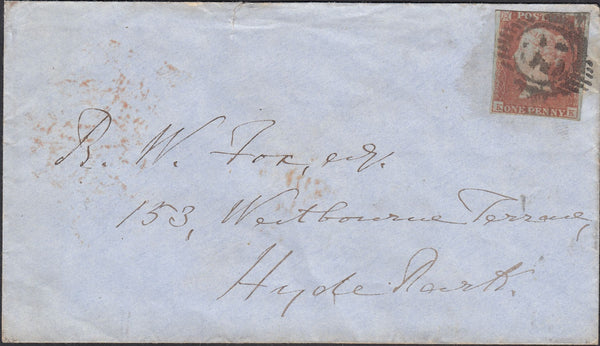 POST
ONE PENNY
B. W. Fox, esq.
153, Westbourne Terrace,
Hyde Park.